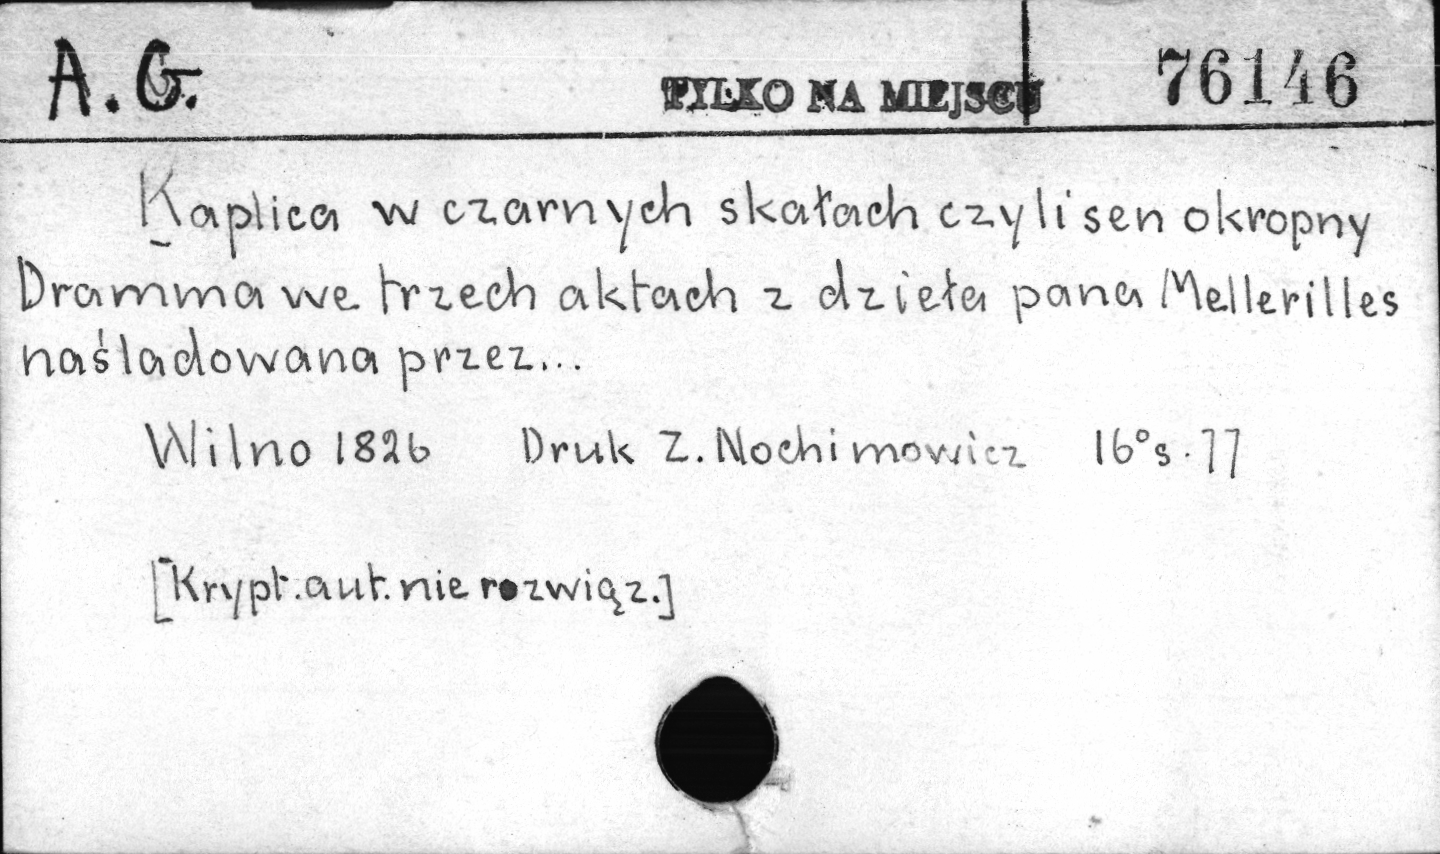 A. G.
TYLKO NA MIEJSCU
76146
Kaplica w czarnych skałach czyli sen okropny
Dramma we trzech aktach z dzieła pana Mellerilles
naśladowana przez...
Wilno 1826 Druk Z. Nochimowicz 16° s. 77
[Krypt. aut. nie rozwiąz.]